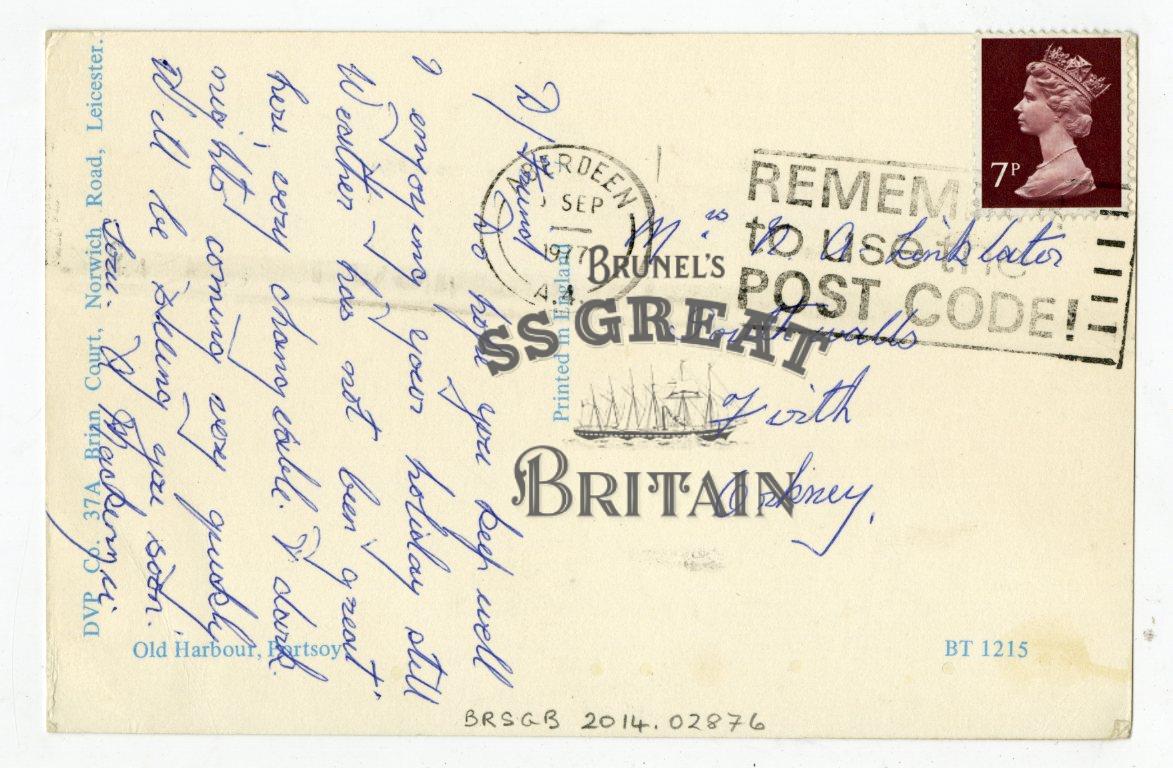 D/ Aunt
Do hope you keep well
& enjoying your holiday still
Weather has not been great
here, very changeable. & dark
nights coming very quickly
Will be seeing you soon.
Love.
Mrs A. Linklater
South Walls
Firth
Orkney.
ABERDEEN
SEP
1977
REMEM
to use the
POST CODE!
7P
BRUNEL'S
SS GREAT
BRITAIN
Printed in England
DVP Co. 37A Brian Court, Norwich Road, Leicester.
Old Harbour, Portsoy
BT 1215
BRSGB 2014.02876